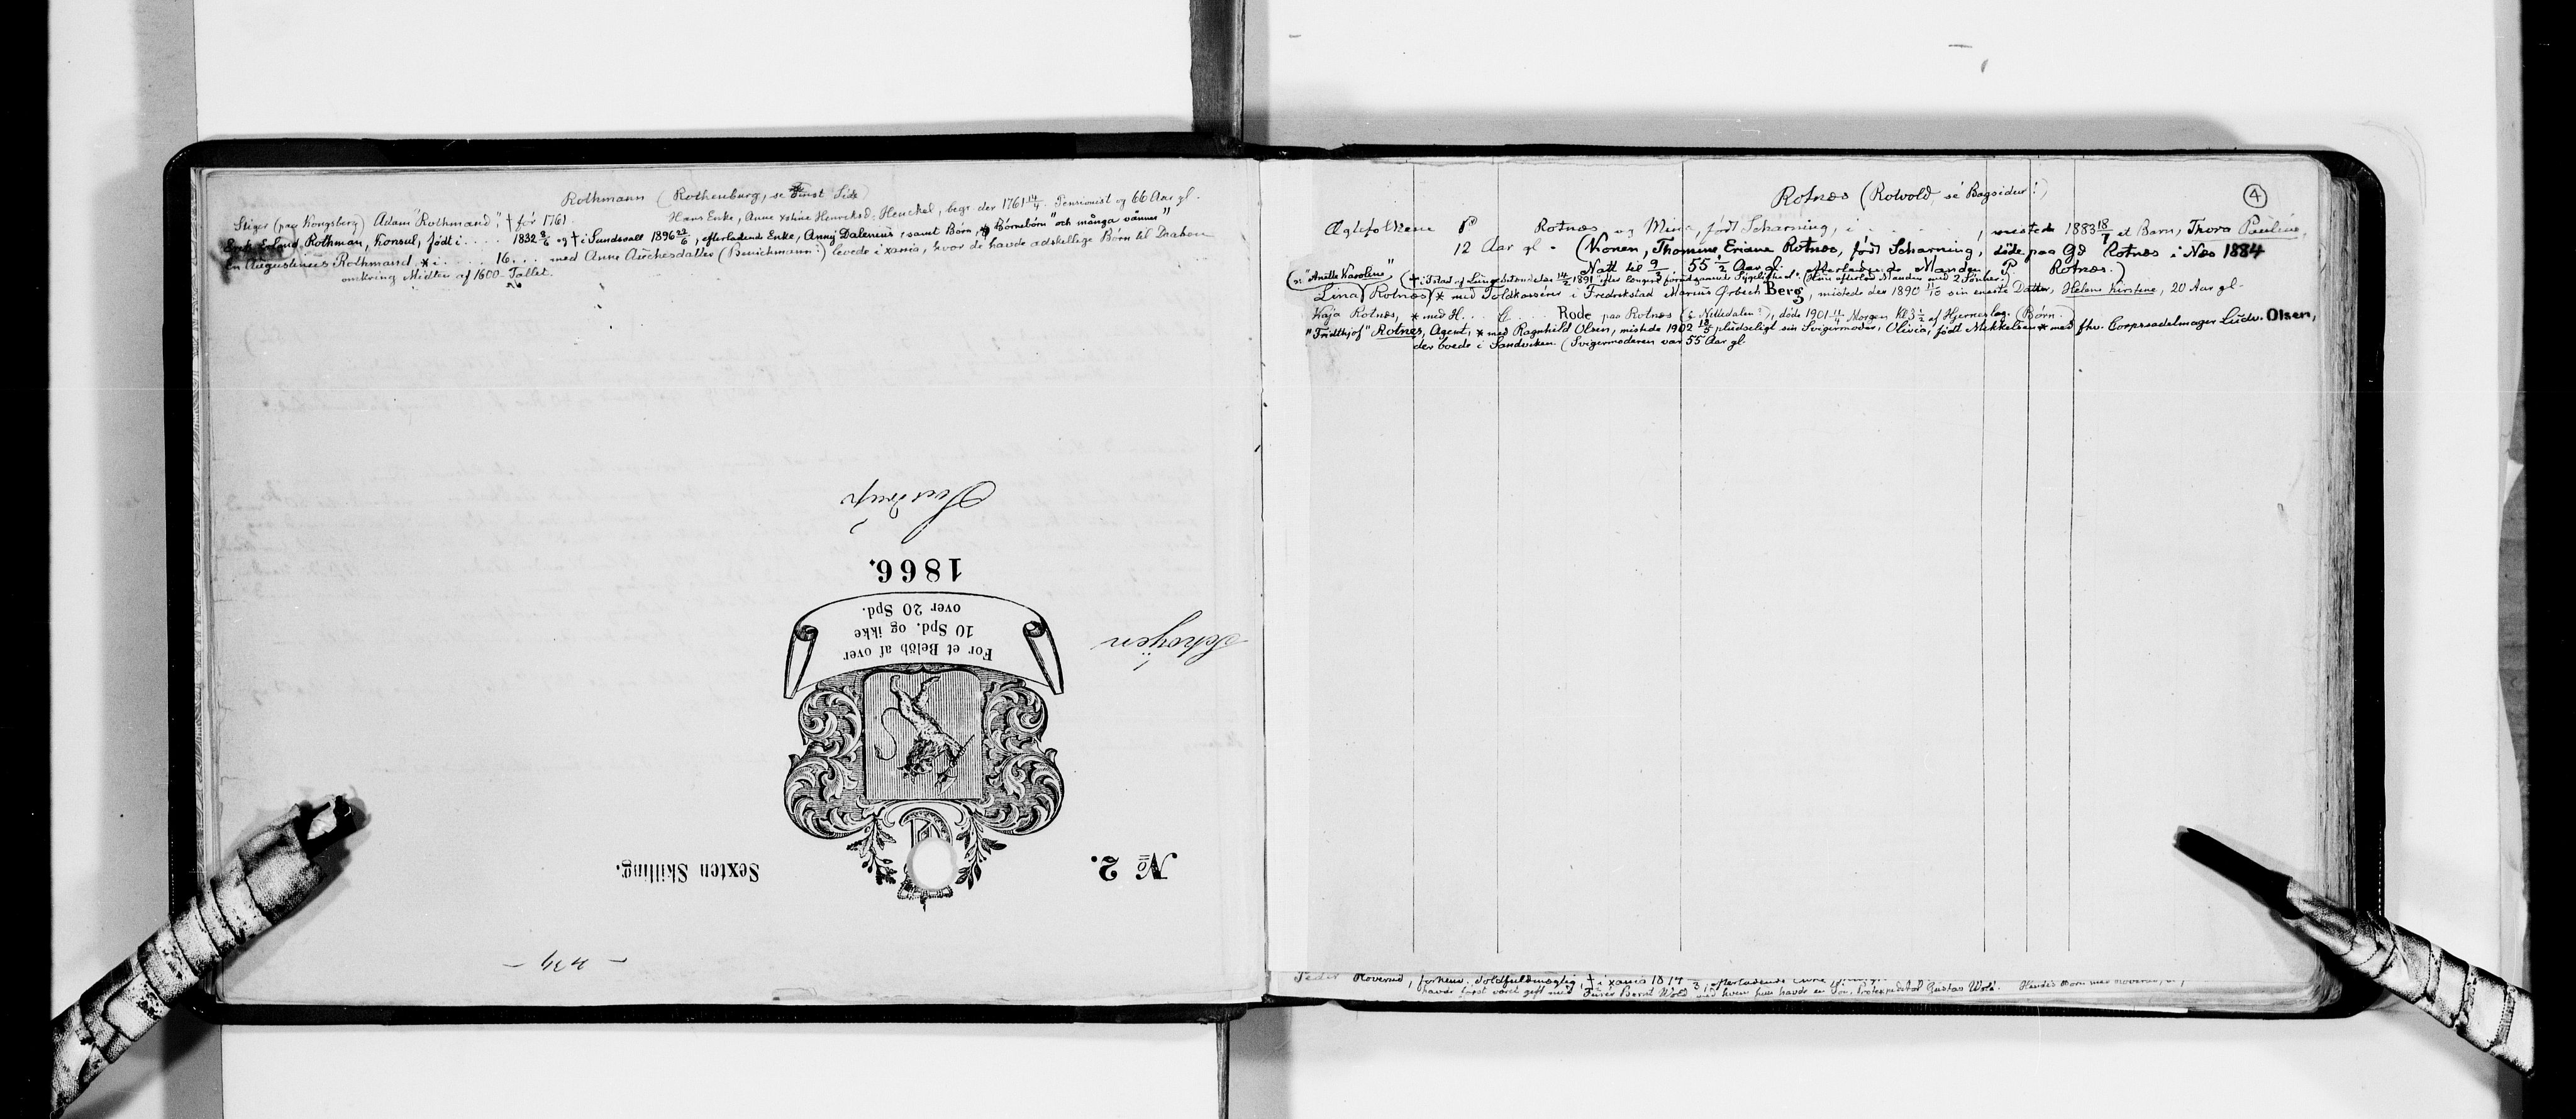 Rothmann (Rothenburg, se først Side)
Stiger (paa Kongsberg) Adam "Rothmand", † før 1761. Hans Enke, Anne xstine Henriksd. Henckel, begr. der 1761 14/4. Pensionist og 66 Aar gl.
Erland Rothman, Konsul, født i .... 1832 8/6 og † i Sundsvall 1896 22/6, efterladende Enke, Anny Dalenius, samt Børn, Børnebörn "och många vänner"
En Augustinus Rothmand * i ..... 16... med Anne Airchesdatter (Benichmann?) levede i xania, hvor de havde adskillige Børn til Daaben
omkring Midten af 1600-Tallet.
Sundrup
1866.
For et Beløb af over
10 Spd. og ikke
over 20 Spd.
Schøyen
No 2.
Sexten Skilling.
- 434 -
Rotnæs (Rotvold se Bagsiden!)
4
Ægtefolkene P Rotnæs og Mina, født Scharning, i ....., mistede 1883 18/7 et Barn, Thora Pauline,
12 Aar gl. - (Konen, Thomine Eriane Rotnæs, født Scharning, døde paa Gd Rotnæs i Næs 1884
Natt til 9/3 55 1/2 Aar gl. efterladende Manden P Rotnæs.)
(el. "Anette Karoline") († i Fstad af Lungebetændelse 14/2 1891 efter længere foregaaende Sygelighed. (Hun efterlod Manden med 2 Sønner.)
Lina Rotnæs * med Toldkasserer i Fredrikstad Marius Ørbech Berg, mistede der 1890 11/10 sin eneste Datter, Helene Kirstine, 20 Aar gl.
Kaja Rotnæs, * med H... C.... Rode paa Rotnæs (i Nittedalen?), døde 1901 11/4 Morgen Kl 3 1/2 af Hjerneslag. (Børn.)
"Fridthjof" Rotnes, Agent, * med Ragnhild Olsen, mistede 1902 18/5 pludseligt sin Svigermoder, Olivia, født Mikkelsen * med fhv. Corpssadelmager Ludv. Olsen,
der boede i Sandviken. (Svigermoderen var 55 Aar gl.
Peder Roverud, forhenv. Toldfuldmægtig, † i xania 18
havde først været gift med Furer Bernt Wold med hvem hun havde en Søn, Postexpeditør Gustav Wold. Hendes Børn med Roverud,